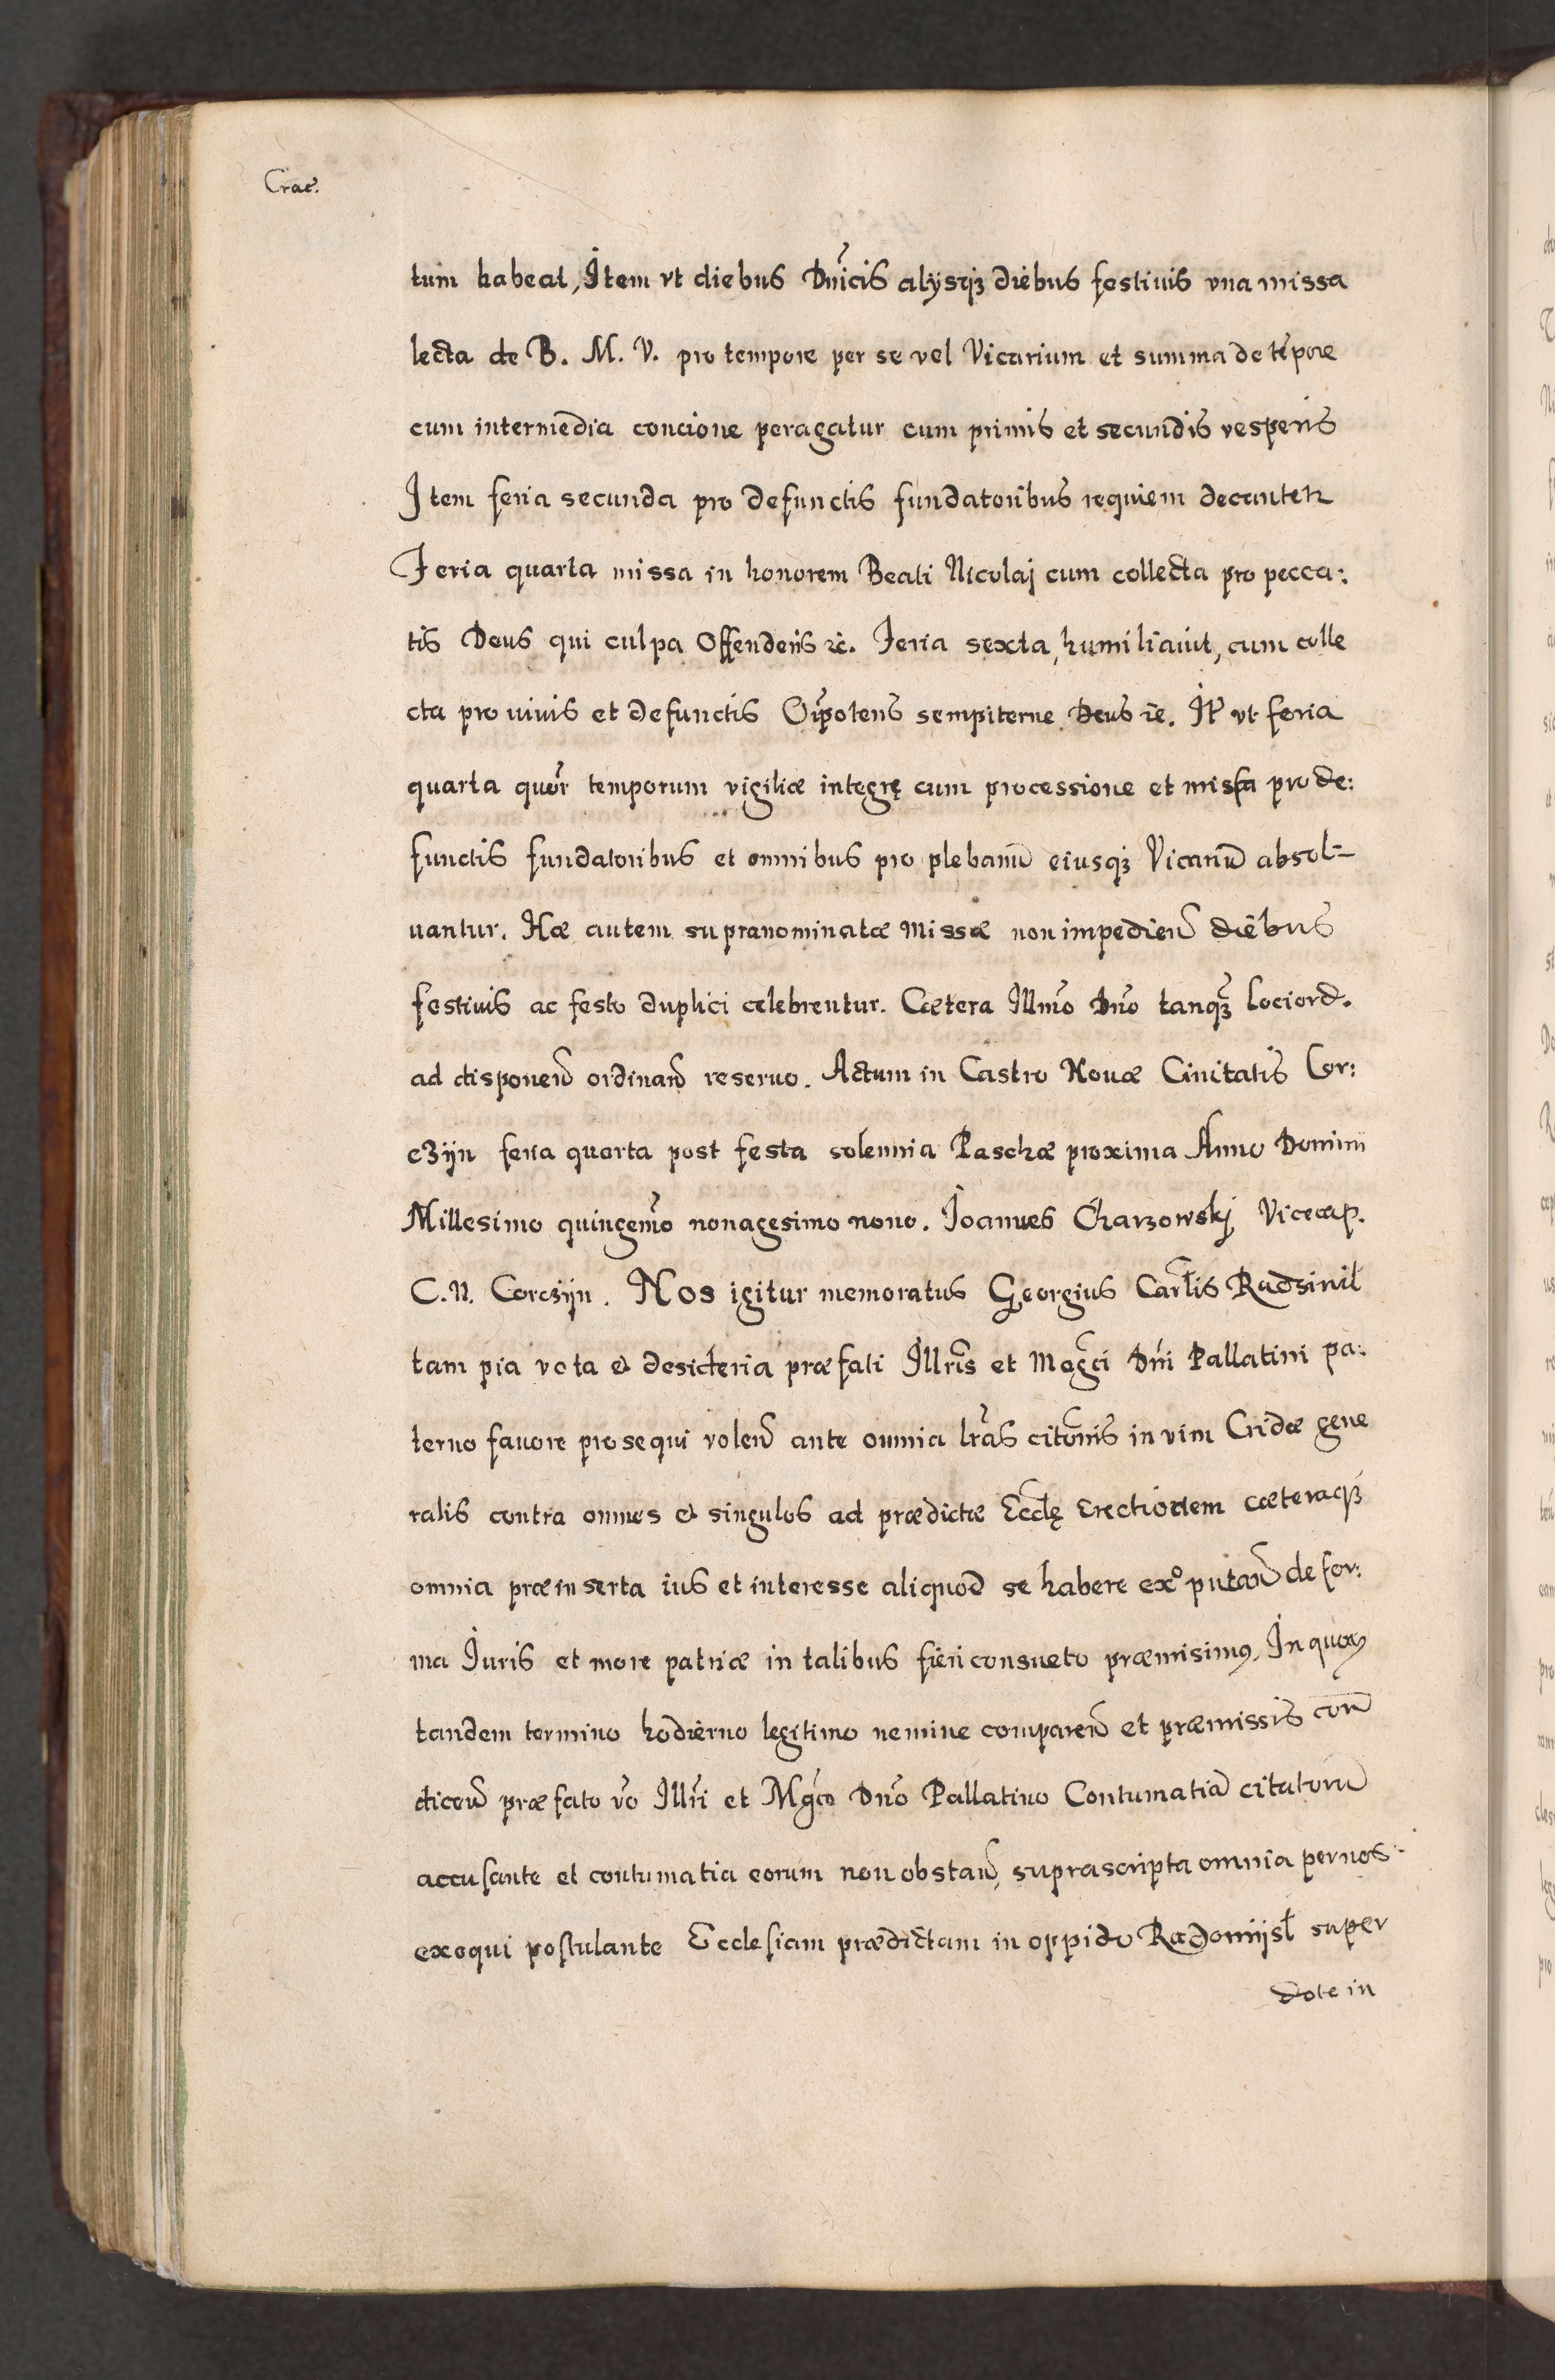 Crac.
tum habeat, Item vt diebus Dnicis alijsqꝫ diebus festiuis vna missa
lecta de B. M. V. pro tempore per se vel Vicarium et summa de tẽpore
cum intermedia concione peragatur cum primis et secundis vesperis
Item feria secunda pro defunctis fundatoribus requiem decanteꝛ
Feria quarta missa in honorem Beati Nicolaj cum collecta pro pecca:
tis Deus qui culpa Offenderis ꝛc. Feria sexta, humiliauit, cum colle
cta pro viuis et defunctis Oĩpotens sempiterne Deus ꝛc. Itẽ vt feria
quarta quor temporum vigiliæ integrę cum processione et missa pro de:
functis fundatoribus et omnibus pro plebanũ eiusqꝫ Vicariũ absol=
uantur. Hæ autem supranominatæ Missæ non impedien̄ diebus
festiuis ac festo duplici celebrentur. Cætera Illmo Dno tanqꝫ lociord.
ad disponen̄ ordinan̄ reseruo. Actum in Castro Nouæ Ciuitatis Cor:
cziјn feria quarta post festa solemnia Paschæ proxima Anno Domini
Millesimo quingemo nonagesimo nono. Ioannes Charzowskj Vicecap.
C. N. Corczijn. Nos igitur memoratus Georgius Carlis Radziuił
tam pia vota & desideria præfati Illris et Magci Dni Pallatini pa:
terno fauore prosequi volen̄ ante omnia lras citonis in vim Cridæ gene
ralis contra omnes & singulos ad prædictæ Eccłę Erectionem cæteraqꝫ
omnia præinserta ius et interesse aliquod se habere exº putan̄ de for:
ma Iuris et more patriæ in talibus fieri consueto præmisimꝰ. In quoꝝ
tandem termino hodierno legitimo nemine comparen̄ et præmissis con̄
dicen̄ præfato vo Illri et Mgco Dno Pallatino Contumatiã citatorũ
accusante et contumatia eorum non obstan̄, suprascripta omnia per nos
exequi postulante Ecclesiam prædictam in oppido Radomijsł super
dote in